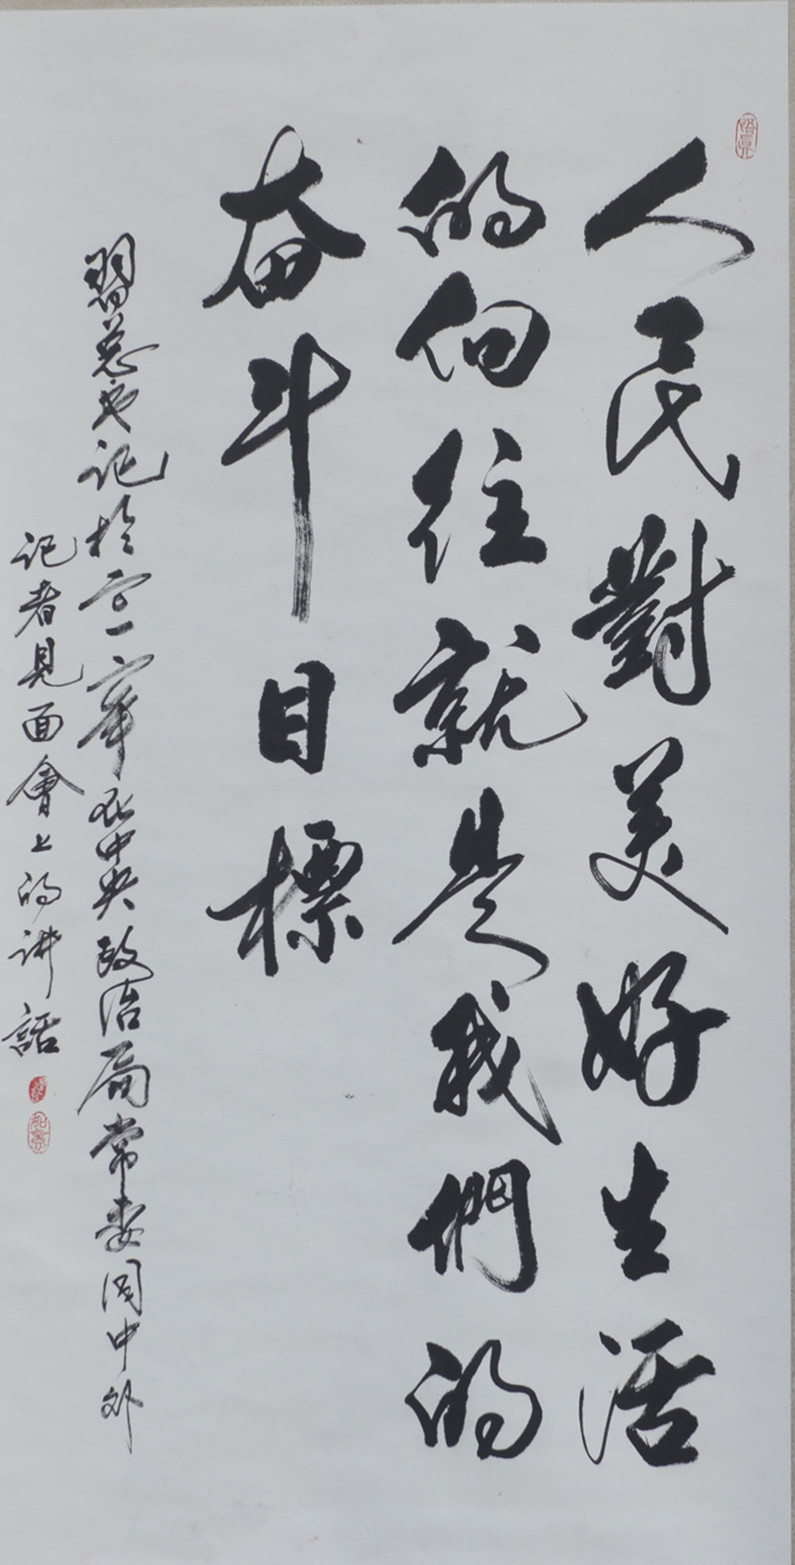 人民對美好生活
的向往就是我們的
奋斗目標
習总书记於二〇一二年在中央政治局常委同中外
记者見面會上的讲話